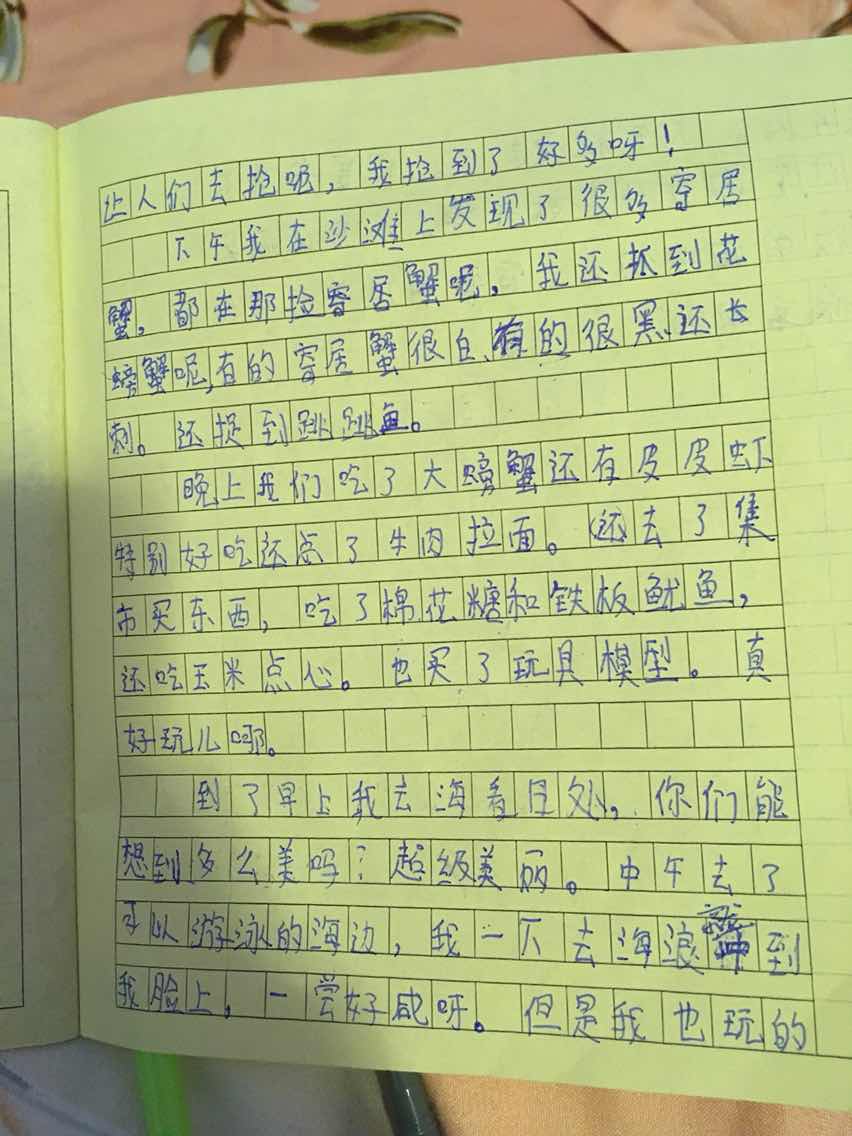 让人们去抢呢，我抢到了好多呀！
下午我在沙滩上发现了很多寄居
蟹，都在那捡寄居蟹呢，我还抓到花
螃蟹呢，有的寄居蟹很白、有的很黑、还长
刺。还捉到跳跳鱼。
晚上我们吃了大螃蟹还有皮皮虾
特别好吃还点了牛肉拉面。还去了集
市买东西，吃了棉花糖和铁板鱿鱼，
还吃玉米点心。也买了玩具模型。真
好玩儿哪。
到了早上我去海看日处，你们能
想到多么美吗？超级美丽。中午去了
可以游泳的海边，我一下去海浪就冲到
我脸上，一尝好咸呀。但是我也玩的